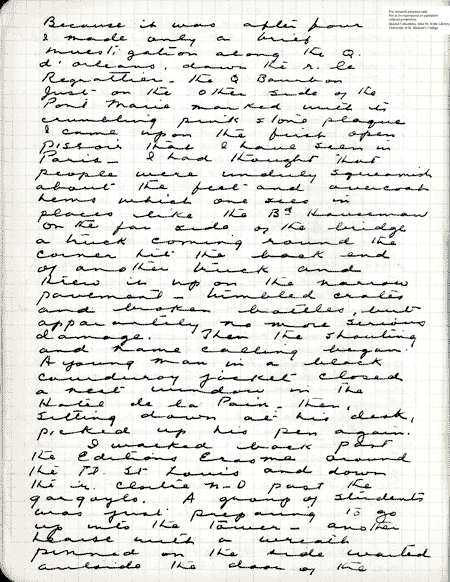 For research purposes only.
Not to be reproduced or published
without permission.
Special Collections, John M. Kelly Library,
University of St. Michael's College
Because it was after four
I made only a brief
investigation along the Q.
d'orleans, down the r. le
Regrattier - the Q Bourbon
Just on the other side of the
Pont Marie marked with its
crumbling pink stone plaque
I came upon the first open
pissoir that I have seen in
Paris - I had thought that
people were unduly squeamish
about the feet and overcoat
hems which one sees in
places like the Bd Haussman
On the far side of the bridge
a truck coming round the
corner hit the back end
of another truck and
threw it up on the narrow
pavement - tumbled crates
and broken bottles, but
apparently no more serious
damage. Then the shouting
and name calling began.
A young man in a black
courduroy jacket closed
a window in the
Hotel de la Paix - then,
sitting down at his desk,
picked up his pen again.
I walked back past
the Editions Erasme around
the St Louis and down
the r. Cloitre N-D past the
gargoyls. A group of students
was just preparing to go
up into the Tower - another
hearse with a wreath
pinned on the side waited
outside the door of the